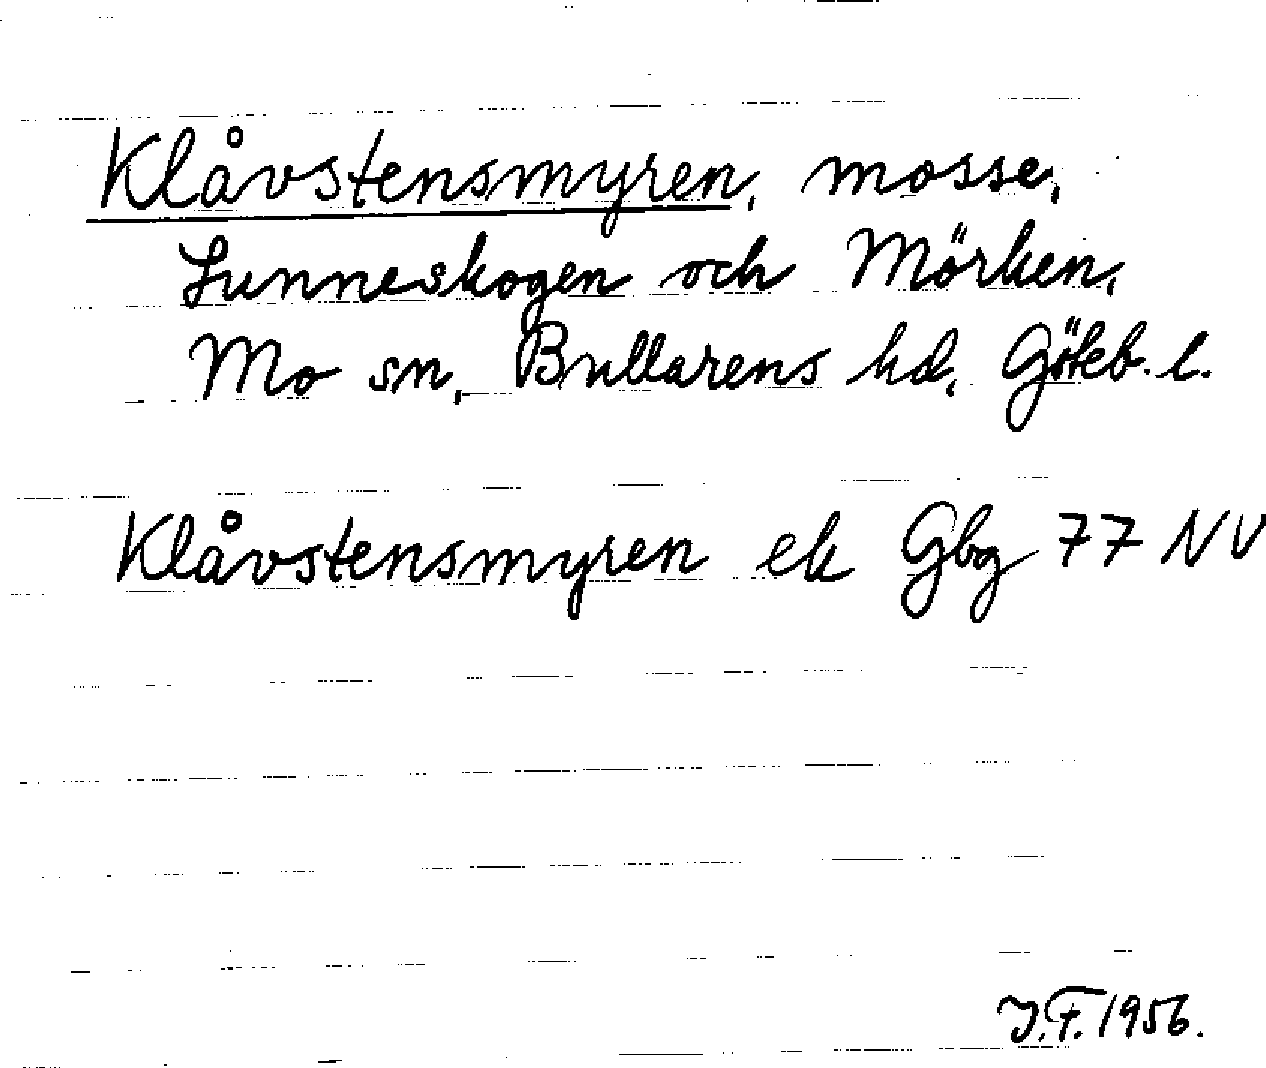 Klåvstensmyren, mosse,
Lunneskogen och Mörken,
Mo sn, Bullarens hd, Göteb. l.
Klåvstensmyren ek Gbg 77 NV
J.F. 1956.